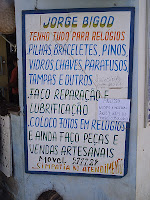 JORGE BIGOD
TENHO TUDO PARA RELOGIOS
PILHAS BRACELETES, PINOS
VIDROS, CHAVES, PARAFUSOS
TAMPAS E OUTROS
FAÇO REPARAÇÃO E
LUBRIFICAÇÃO
COLOCO FOTOS EM RELOGIOS
E AINDA FAÇO PEÇAS E
VENDAS ARTESANAIS
MOVEL
SIMPATIA NO ATEND